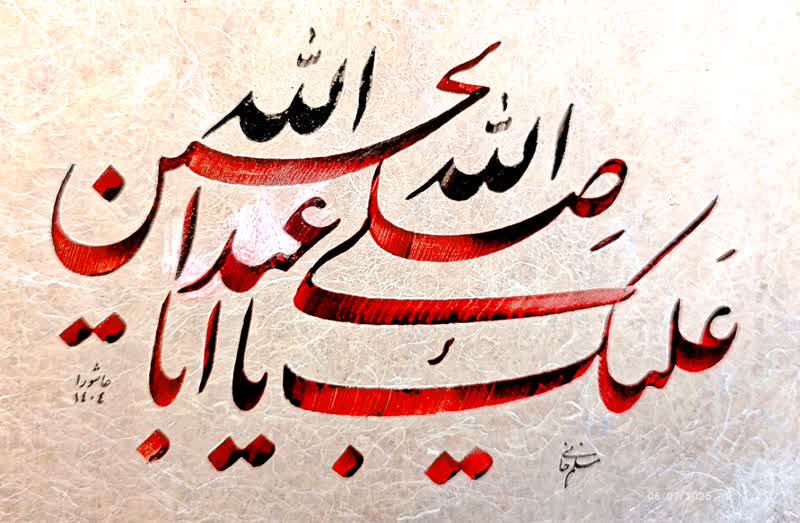 صلی الله
علیک یا ابا
عبد الله الحسین
عاشورا
۱۴۰۴
مسلم خانی
06/07/2025